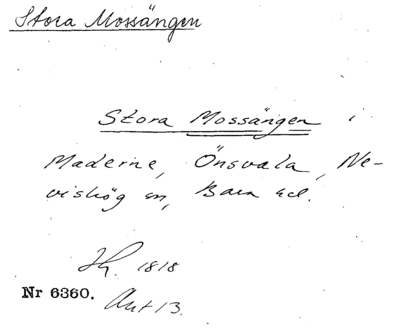 Stora Mossängen
Stora Mossängen i
Maderne, Önsvala, Ne-
vishög sn, Bara hd.
Jh. 1818
Nr 6360. Akt 13.